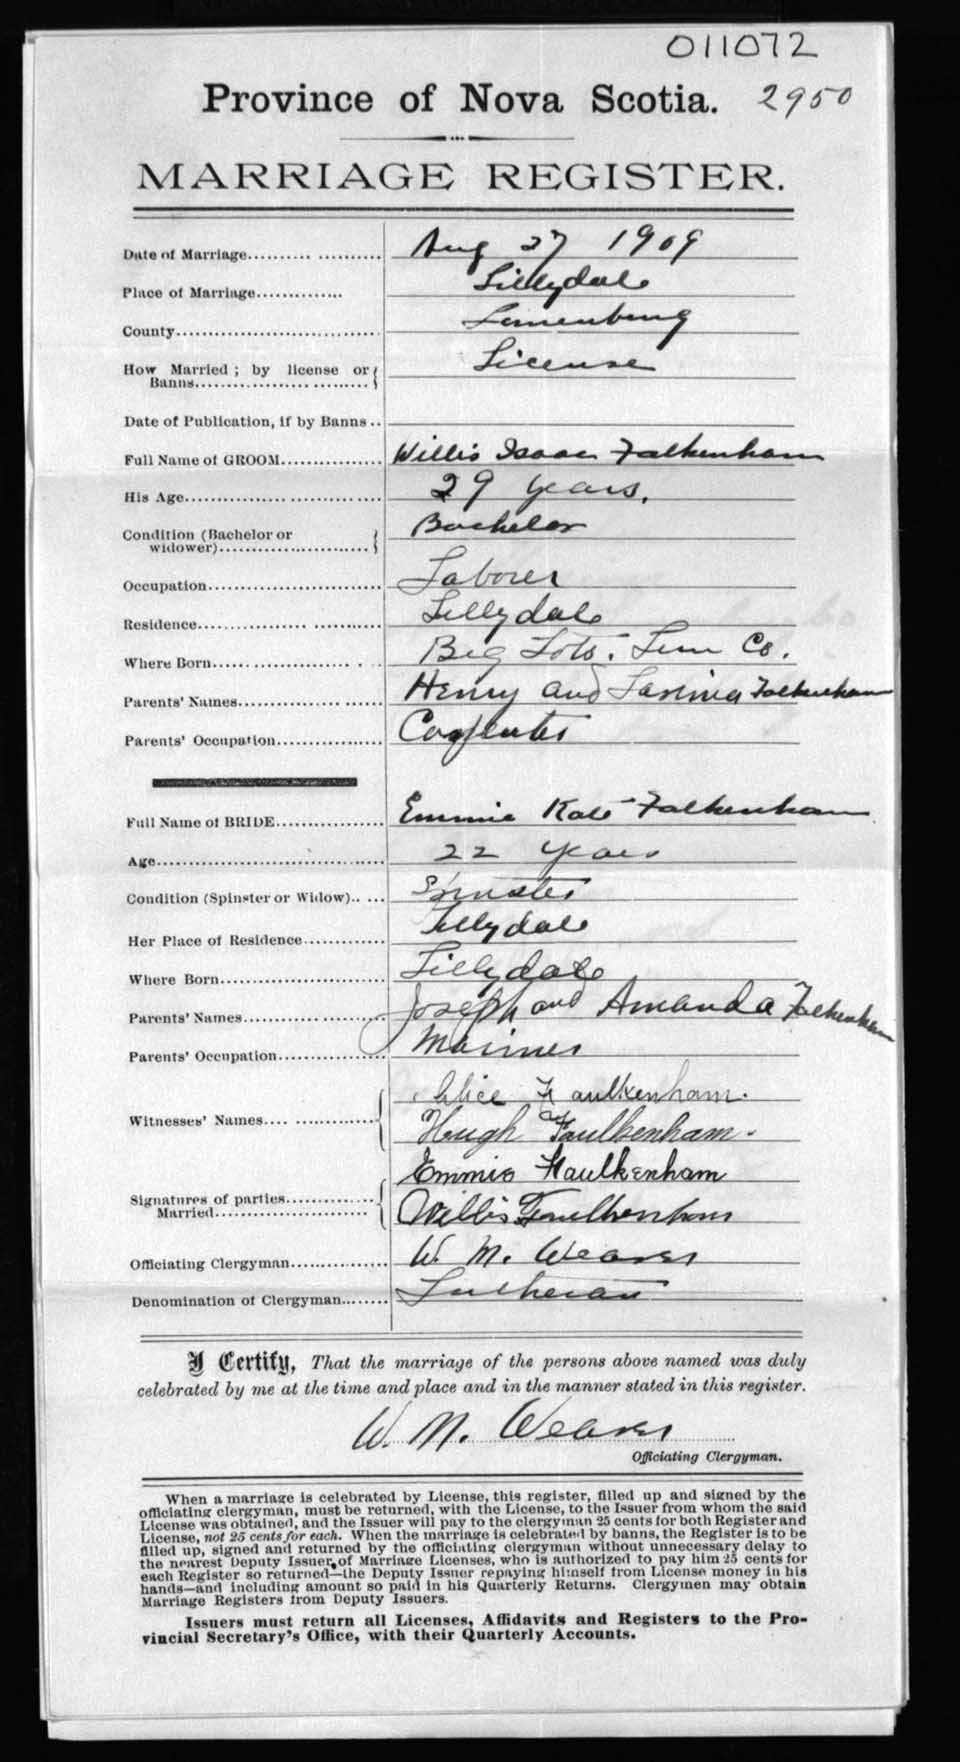 011072
Province of Nova Scotia. 2950
MARRIAGE REGISTER.
Date of Marriage.......... ........... Aug 27 1909
Place of Marriage.............. Lillydale
County............................. Lunenburg
How Married; by license or Banns.................... License
Date of Publication, if by Banns ..
Full Name of GROOM................ Willis Isaac Falkenham
His Age............................... 29 years.
Condition (Bachelor or widower)........................ Bachelor
Occupation........................... Laborer
Residence................. ........... Lillydale
Where Born........................ Big Lots. Lun Co.
Parents' Names................. ...... Henry and Falkenham
Parents' Occupation................. Carpenter
Full Name of BRIDE................. Emmie Kate Falkenham
Age.................................... 22 years
Condition (Spinster or Widow).. ... Spinster
Her Place of Residence............. Lillydale
Where Born........................... Lillydale
Parents' Names....................... Joseph and Amanda Falkenham
Parents' Occupation................. Mariner
Witnesses' Names.... ............. Alice Faulkenham.
Hugh Faulkenham.
Emmie Faulkenham
Signatures of parties Married........................ Willis Faulkenham
Officiating Clergyman................ W. M. Weaver
Denomination of Clergyman........ Lutheran
I Certify, That the marriage of the persons above named was duly
celebrated by me at the time and place and in the manner stated in this register.
W. M. Weaver
Officiating Clergyman.
When a marriage is celebrated by License, this register, filled up and signed by the
officiating clergyman, must be returned, with the License, to the Issuer from whom the said
License was obtained, and the Issuer will pay to the clergyman 25 cents for both Register and
License, not 25 cents for each. When the marriage is celebrated by banns, the Register is to be
filled up, signed and returned by the officiating clergyman without unnecessary delay to
the nearest Deputy Issuer of Marriage Licenses, who is authorized to pay him 25 cents for
each Register so returned—the Deputy Issuer repaying himself from License money in his
hands—and including amount so paid in his Quarterly Returns. Clergymen may obtain
Marriage Registers from Deputy Issuers.
Issuers must return all Licenses, Affidavits and Registers to the Pro-
vincial Secretary's Office, with their Quarterly Accounts.